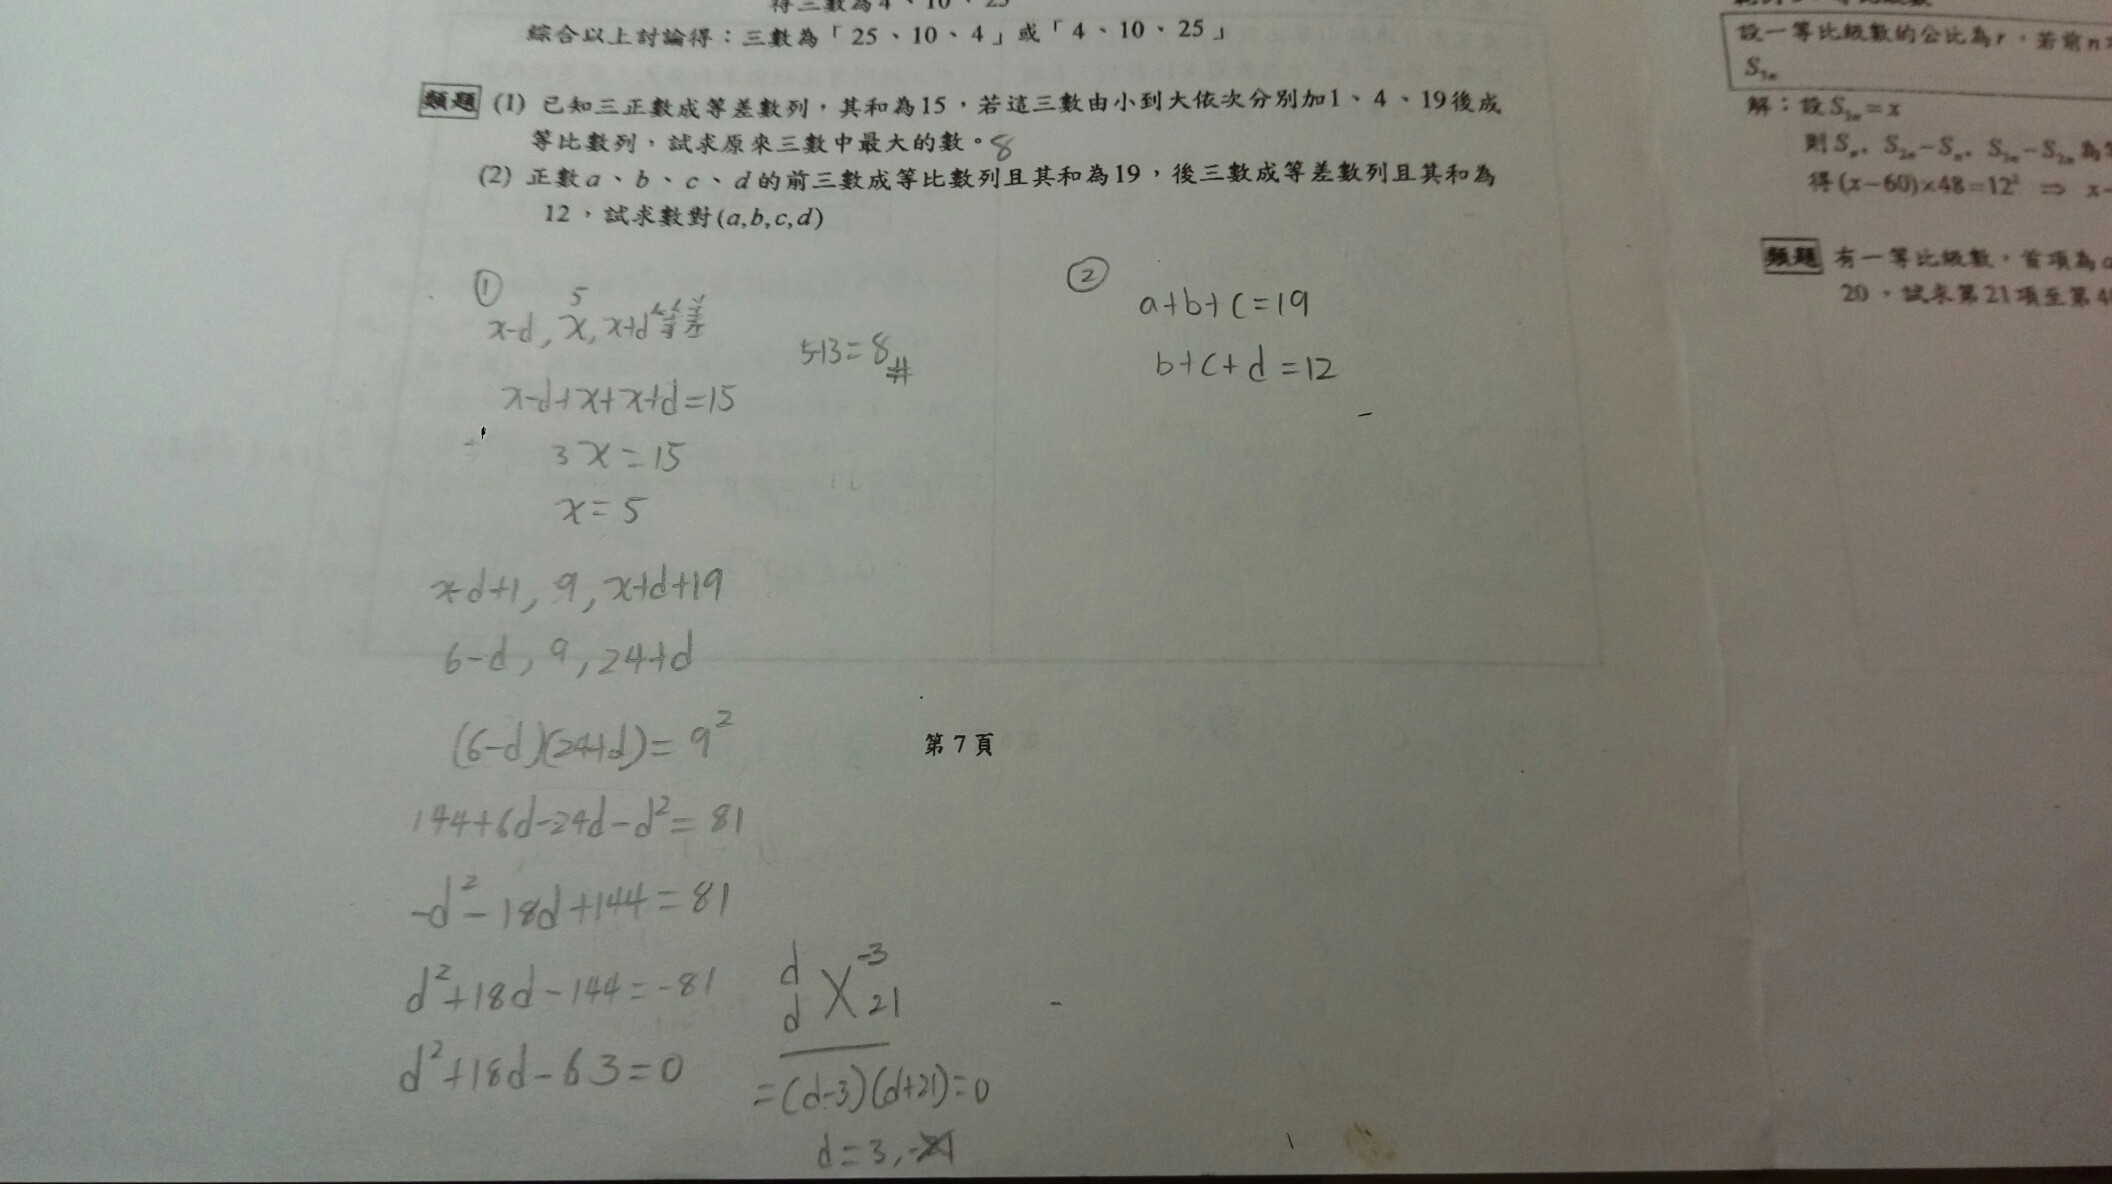 得三數為4、10、25
綜合以上討論得：三數為「25、10、4」或「4、10、25」
類題 (1) 已知三正數成等差數列，其和為15，若這三數由小到大依次分別加1、4、19後成
等比數列，試求原來三數中最大的數。8
(2) 正數a、b、c、d的前三數成等比數列且其和為19，後三數成等差數列且其和為
12，試求數對(a,b,c,d)
①
5
x-d, x, x+d 等差
x-d+x+x+d=15
3x=15
x=5
x-d+1, 9, x+d+19
6-d, 9, 24+d
(6-d)(24+d)=9²
144+6d-24d-d²=81
-d²-18d+144=81
d²+18d-144=-81
d²+18d-63=0
5+3=8#
d -3
d 21
=(d-3)(d+21)=0
d=3,-21
②
a+b+c=19
b+c+d=12
第7頁
設一等比級數的公比為r，若前n
S₃ₙ
解：設S₂ₙ=x
則Sₙ, S₂ₙ-Sₙ, S₃ₙ-S₂ₙ為
得(x-60)×48=12² ⇒ x-
類題 有一等比級數，首項為a
20，試求第21項至第4